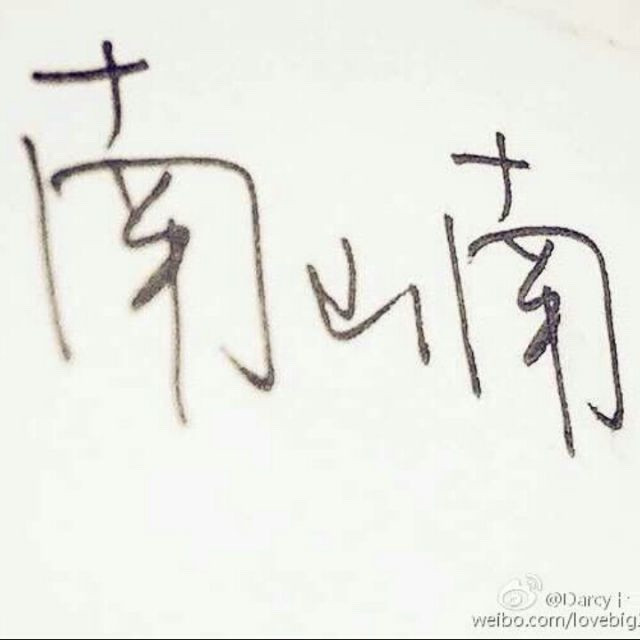 南山南
@Darcy
weibo.com/lovebig